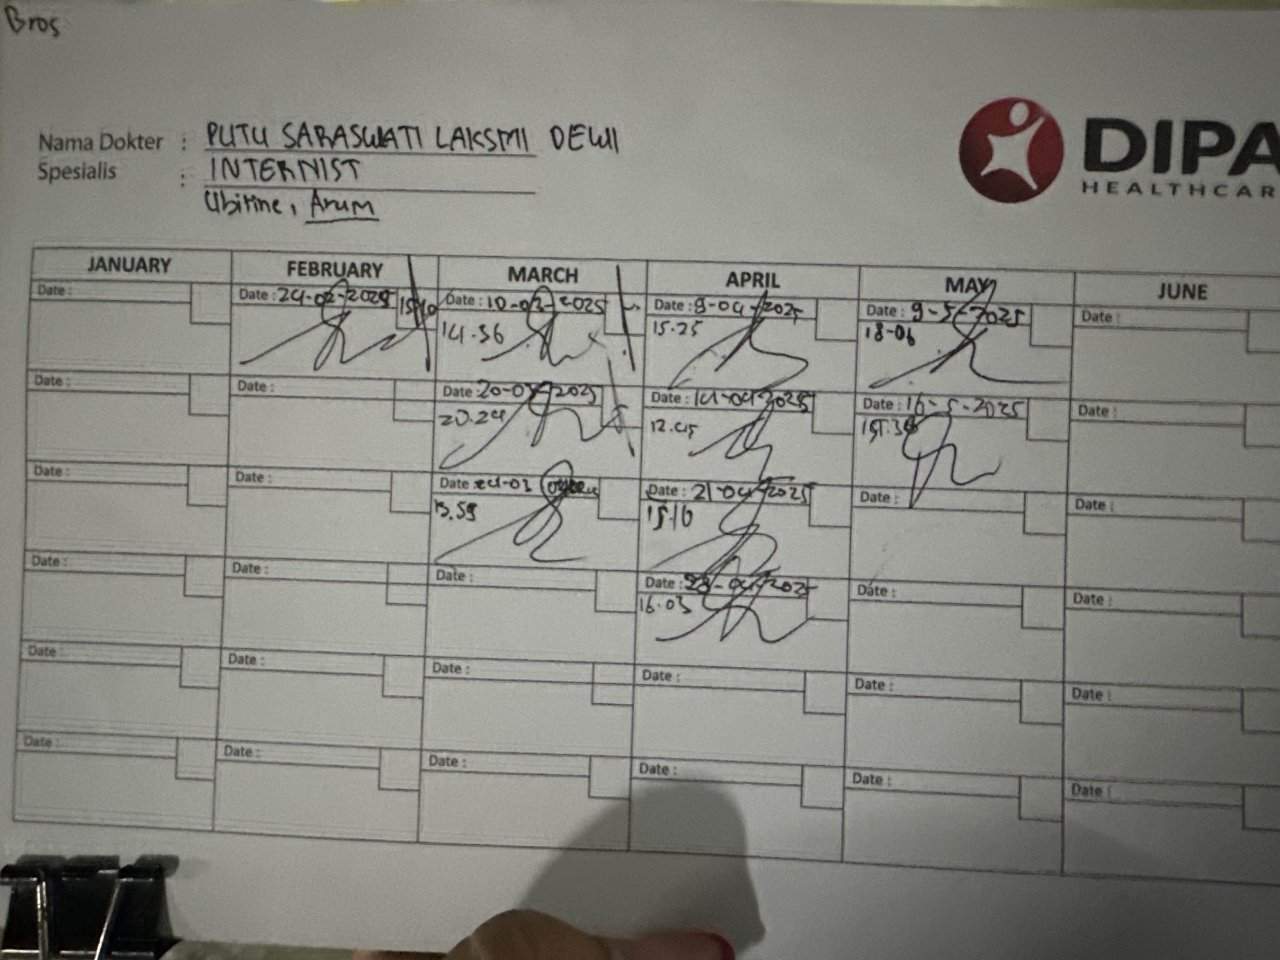 Bros
Nama Dokter : PUTU SARASWATI LAKSMI DEWI
Spesialis : INTERNIST
Ubitine, Arum
DIPA
HEALTHCAR
JANUARY FEBRUARY MARCH APRIL MAY JUNE
Date : Date : 24-02-2025 15:10 Date : 10-03-2025 Date : 9-04-2025 Date : 9-5-2025 Date :
14.36 15.25 18-06
Date : Date : Date : 20-03-2025 Date : 14-04-2025 Date : 16-5-2025 Date :
20.24 12.45
Date : Date : Date : Date : 21-04-2025 Date : Date :
13.59 15.10
Date : Date : Date : Date : 28-04-2025 Date : Date :
16.03
Date : Date : Date : Date : Date : Date :
Date : Date : Date : Date : Date : Date :